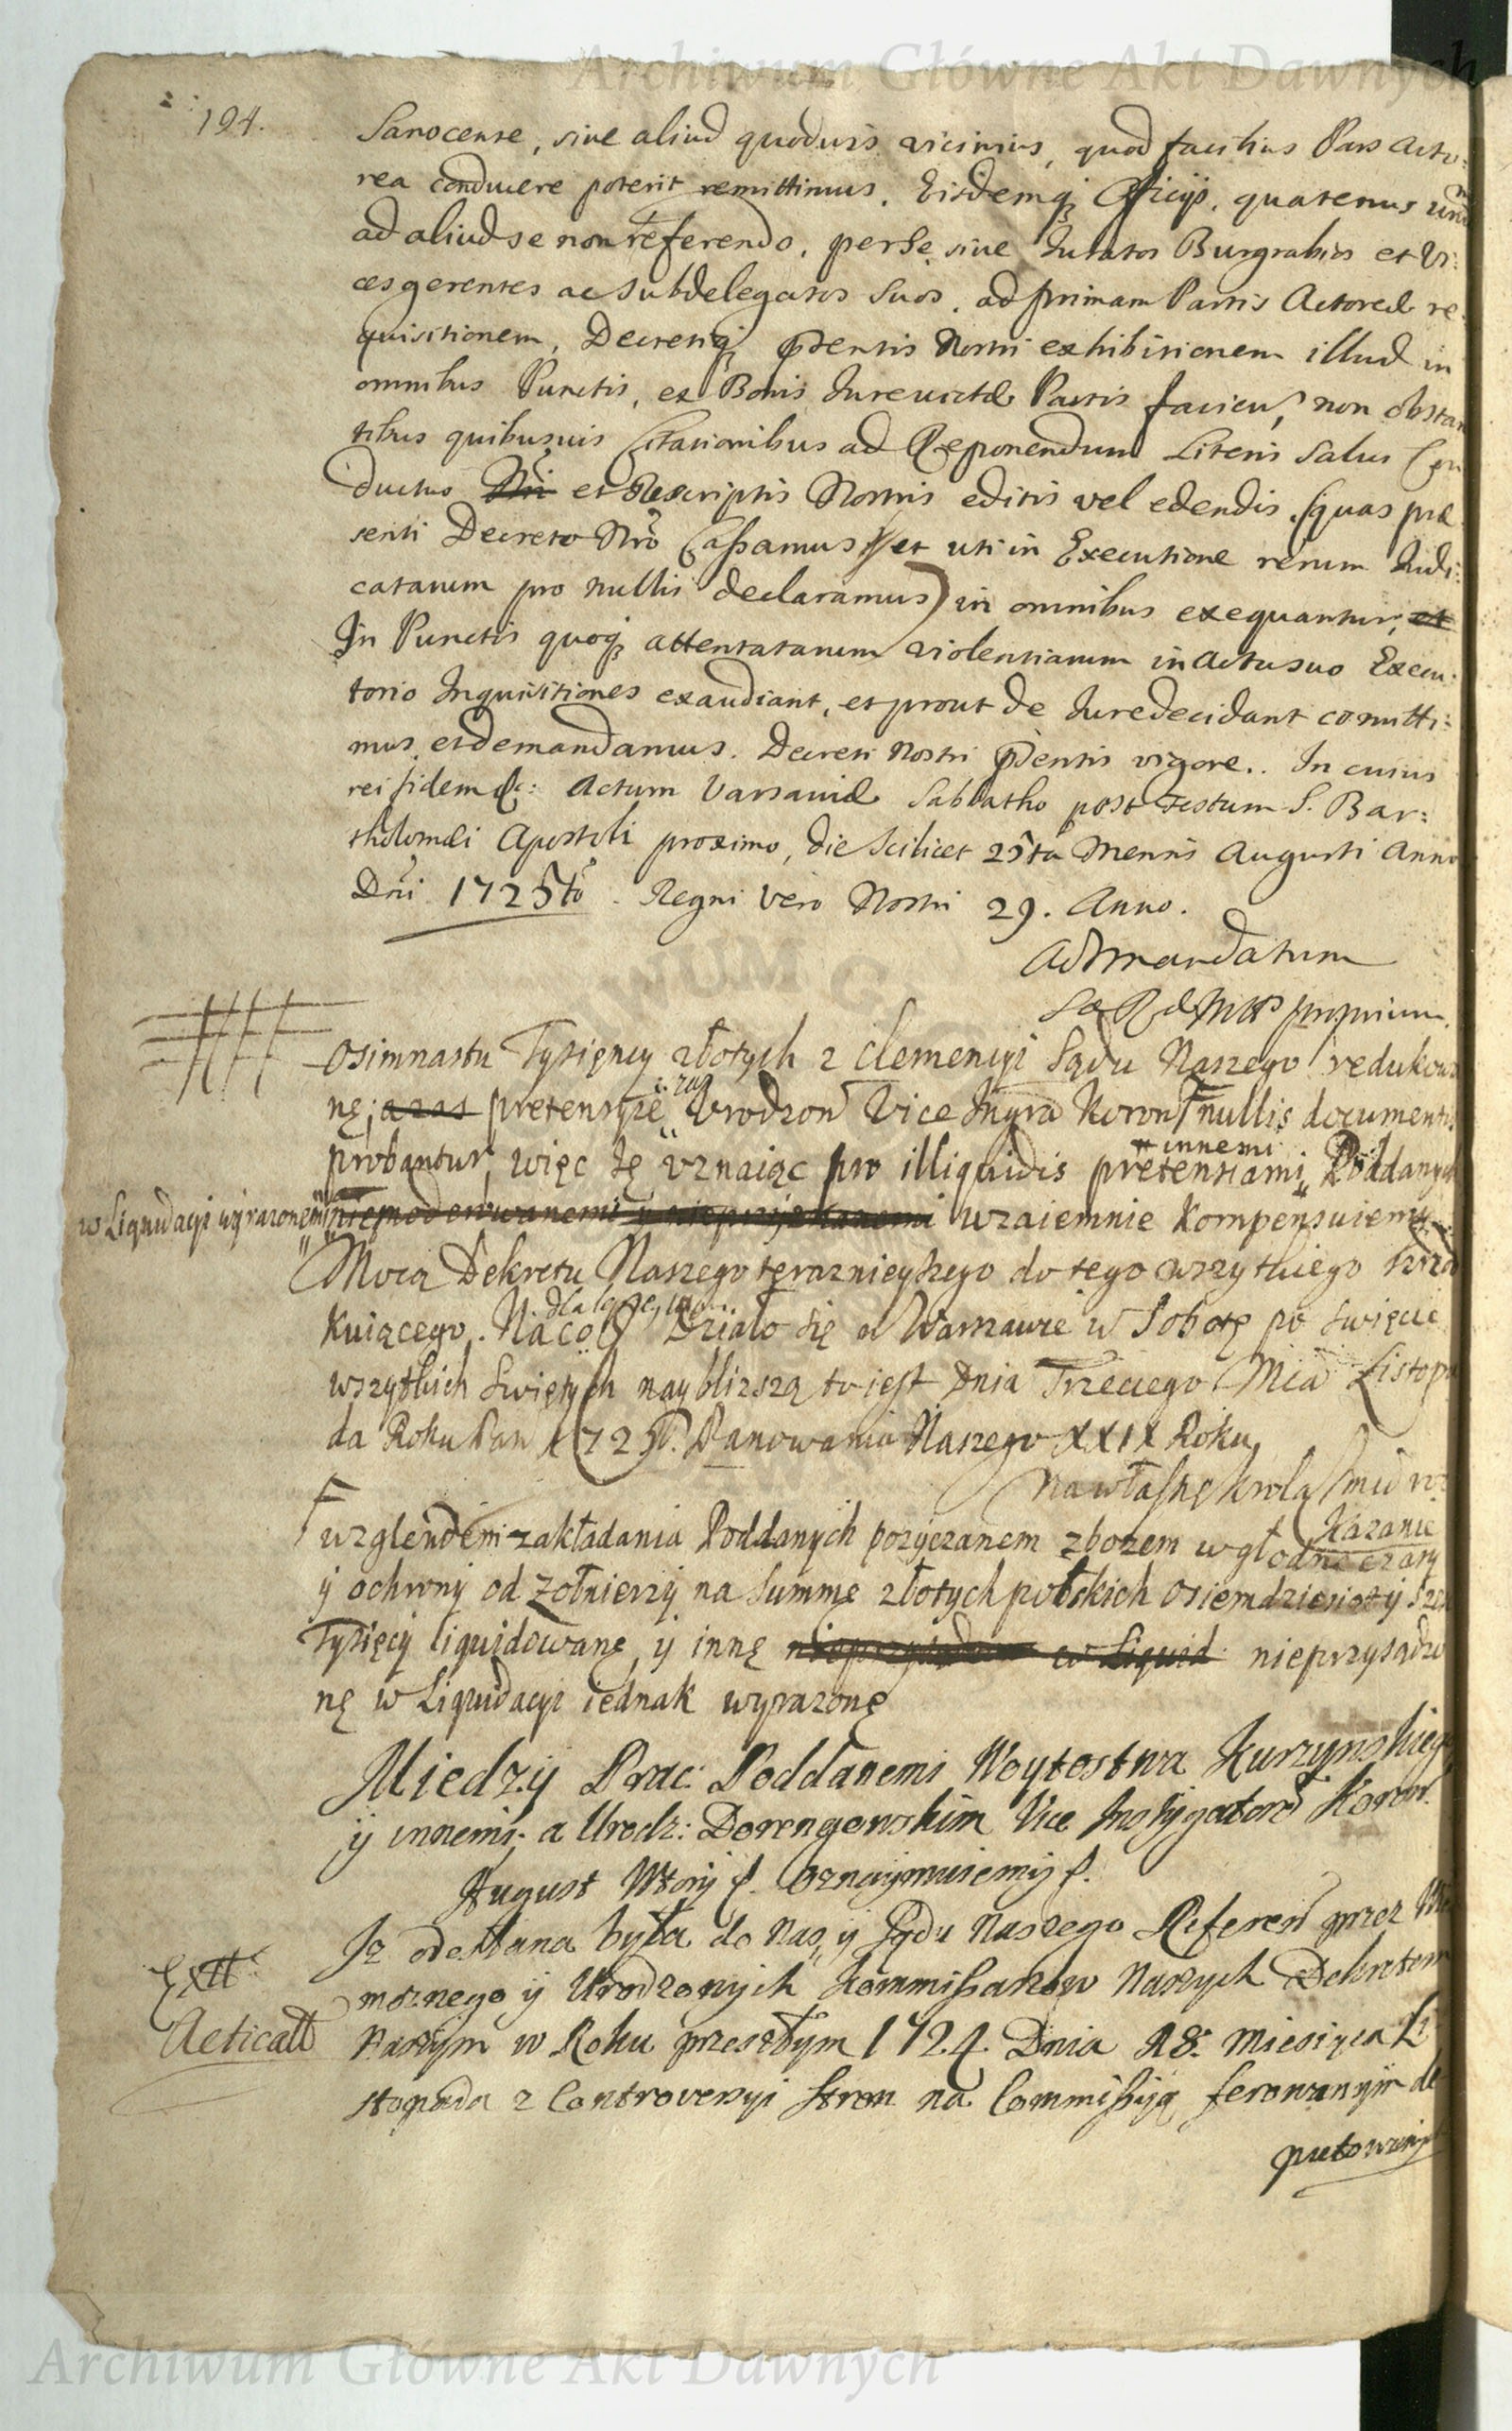 Archiwum Główne Akt Dawnych
194.
Sanocense, sive aliud quodvis vicinius, quod facilius Pars Acto:
rea conducere poterit remittimus. Eisdemq Officijs, quatenus unum
ad aliud se non referendo, per se sive Juratos Burgrabios et Vi:
ces gerentes ac subdelegatos suos, ad primam Partis Actoreæ re
quisitionem, Decretiq pñtentis Nostri exhibitionem illud in
omnibus Punctis, ex Bonis Jurevictæ Partis facien, non obstan
tibus quibusvis Citationibus ad Reponendum Literis Salvi Con
ductus Nri et Rescriptis Nostris editis vel edendis (quas præ
senti Decreto Nro Cassamus et uti in Executione rerum Judi:
catarum pro nullis declaramus) in omnibus exequantur, et
In Punctis quoq attentatarum violentiarum in Actu suo Execu:
torio Inquisitiones exaudiant, et prout de Jure decidant comitti:
mus et demandamus. Decreti Nostri pñtentis vigore.. In cuius
rei fidem &: Actum Varsaviæ Sabbatho post Festum S. Bar:
tholomæi Apostoli proximo, die scilicet 25ta Mensis Augusti Anno
Dni 1725to. Regni vero Nostri 29. Anno.
Ad Mandatum
Sæ Ræ Mttis proprium.
osimnastu Tysięncy złotych z clemencyi Sądu Naszego redukowa
nę; a zas pretensyie i. zaś Urodzon Vice Insgra Koron nullis documentis
probantur, więc tę uznaiąc pro illiquidis pretensiami innemi Poddanych
w Liquidacyi wyrazonemi wzaiemnie kompensuiemy
Mocą Dekretu Naszego teraznieyszego do tego wszytkiego
kuiącego. Na co dla lepszey Działo się w Warszawie w Sobotę po święcie
wszytkich świętych nayblizszą to iest Dnia Trzeciego Mca Listopa
da Roku Pan 1725. Panowania Naszego XXIX Roku
Na własne krola Jmci
kazanie
wzglendem zakładania Poddanych pozyczanem zbozem w głodne czasy
y ochrony od zołnierzy na summę złotych polskich osiemdziesiąt y
Tysięcy liquidowanę, y innę w Liquid: nieprzysądzo
nę w Liquidacyi iednak wyrazonę
Miedzy Prac: Poddanemi Woytostwa Kurzynskiego
y innemi; a Urodz: Dorengowskim Vice Instygatorem Koron.
August Wtory &. Oznaymuiemy &.
Extt
Acticatt
Iz odesłana była do Nas, y Sądu Naszego Referen przez
moznego y Urodzonych Kommissarzow Naszych Dekretem
Naszym w Roku przeszłym 1724. Dnia 18. miesiąca Li
stopada z Controversyi stron na Commissyią ferowanym de
putowanych
Archiwum Główne Akt Dawnych